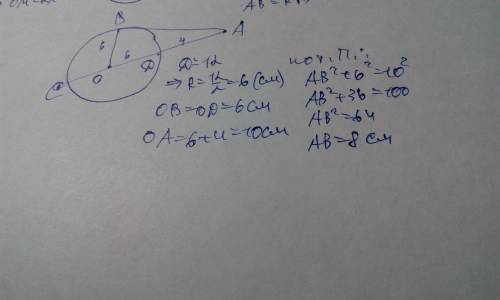 B
A
6
4
6
D
O
C
D=12
=> R=12/2=6(см)
OB=OD=6см
OA=6+4=10см
по т. П.:
AB²+6²=10²
AB²+36=100
AB²=64
AB=8 см